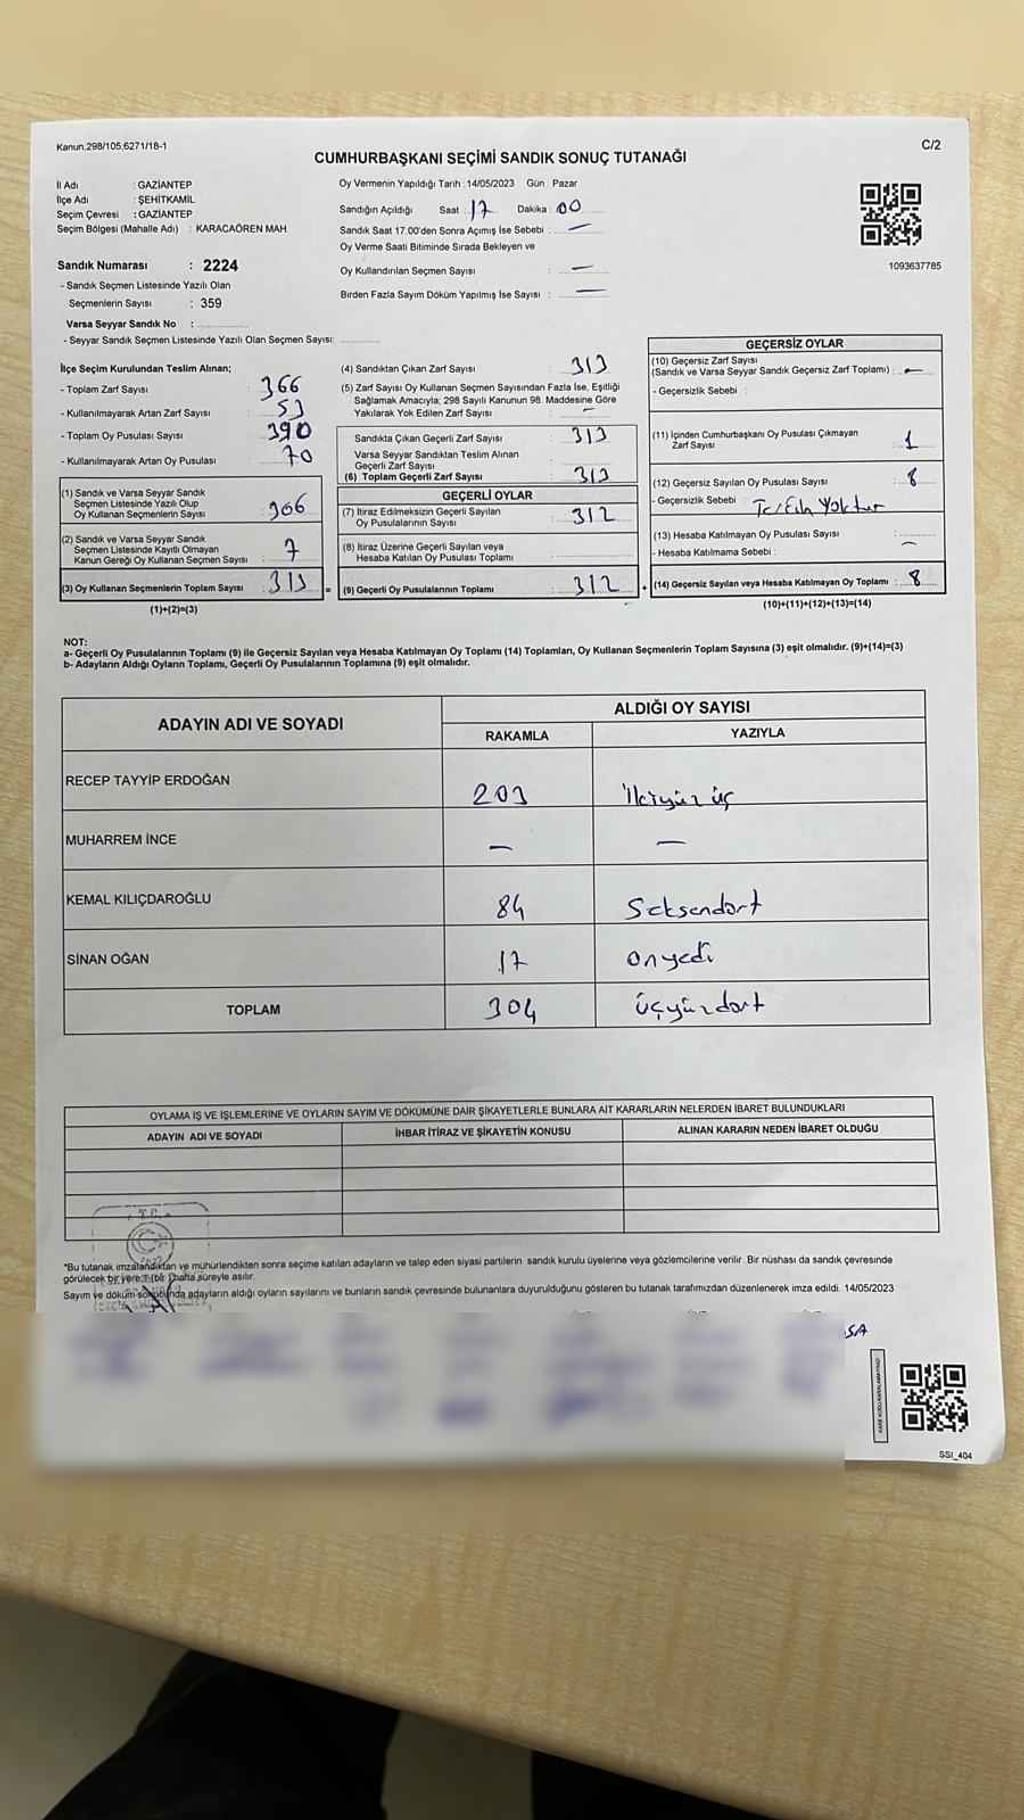 Kanun,298/105,6271/18-1
C/2
CUMHURBAŞKANI SEÇİMİ SANDIK SONUÇ TUTANAĞI
İl Adı : GAZİANTEP
İlçe Adı : ŞEHİTKAMİL
Seçim Çevresi : GAZİANTEP
Seçim Bölgesi (Mahalle Adı) : KARACAÖREN MAH.
Sandık Numarası : 2224
- Sandık Seçmen Listesinde Yazılı Olan
Seçmenlerin Sayısı : 359
Varsa Seyyar Sandık No :
- Seyyar Sandık Seçmen Listesinde Yazılı Olan Seçmen Sayısı:
Oy Vermenin Yapıldığı Tarih : 14/05/2023 Gün : Pazar
Sandığın Açıldığı Saat 17 Dakika 00
Sandık Saat 17.00'den Sonra Açımış İse Sebebi : —
Oy Verme Saati Bitiminde Sırada Bekleyen ve
Oy Kullandırılan Seçmen Sayısı : —
Birden Fazla Sayım Döküm Yapılmış İse Sayısı : —
1093637785
İlçe Seçim Kurulundan Teslim Alınan;
- Toplam Zarf Sayısı 366
- Kullanılmayarak Artan Zarf Sayısı 53
- Toplam Oy Pusulası Sayısı 390
- Kullanılmayarak Artan Oy Pusulası 70
(1) Sandık ve Varsa Seyyar Sandık
Seçmen Listesinde Yazılı Olup
Oy Kullanan Seçmenlerin Sayısı 306
(2) Sandık ve Varsa Seyyar Sandık
Seçmen Listesinde Kayıtlı Olmayan
Kanun Gereği Oy Kullanan Seçmen Sayısı 7
(3) Oy Kullanan Seçmenlerin Toplam Sayısı 313 =
(1)+(2)=(3)
(4) Sandıktan Çıkan Zarf Sayısı 313
(5) Zarf Sayısı Oy Kullanan Seçmen Sayısından Fazla İse, Eşitliği
Sağlamak Amacıyla; 298 Sayılı Kanunun 98. Maddesine Göre
Yakılarak Yok Edilen Zarf Sayısı —
Sandıkta Çıkan Geçerli Zarf Sayısı 313
Varsa Seyyar Sandıktan Teslim Alınan
Geçerli Zarf Sayısı
(6) Toplam Geçerli Zarf Sayısı 313
GEÇERLİ OYLAR
(7) İtiraz Edilmeksizin Geçerli Sayılan
Oy Pusulalarının Sayısı 312
(8) İtiraz Üzerine Geçerli Sayılan veya
Hesaba Katılan Oy Pusulası Toplamı
(9) Geçerli Oy Pusulalarının Toplamı 312 +
GEÇERSİZ OYLAR
(10) Geçersiz Zarf Sayısı
(Sandık ve Varsa Seyyar Sandık Geçersiz Zarf Toplamı) : —
- Geçersizlik Sebebi :
(11) İçinden Cumhurbaşkanı Oy Pusulası Çıkmayan
Zarf Sayısı 1
(12) Geçersiz Sayılan Oy Pusulası Sayısı : 8
- Geçersizlik Sebebi Yoktur
(13) Hesaba Katılmayan Oy Pusulası Sayısı : —
- Hesaba Katılmama Sebebi :
(14) Geçersiz Sayılan veya Hesaba Katılmayan Oy Toplamı : 8
(10)+(11)+(12)+(13)=(14)
NOT:
a- Geçerli Oy Pusulalarının Toplamı (9) ile Geçersiz Sayılan veya Hesaba Katılmayan Oy Toplamı (14) Toplamları, Oy Kullanan Seçmenlerin Toplam Sayısına (3) eşit olmalıdır. (9)+(14)=(3)
b- Adayların Aldığı Oyların Toplamı, Geçerli Oy Pusulalarının Toplamına (9) eşit olmalıdır.
ADAYIN ADI VE SOYADI
ALDIĞI OY SAYISI
RAKAMLA YAZIYLA
RECEP TAYYİP ERDOĞAN 203 ikiyüz üç
MUHARREM İNCE — —
KEMAL KILIÇDAROĞLU 84 Seksendört
SİNAN OĞAN 17 onyedi
TOPLAM 304 üçyüzdört
OYLAMA İŞ VE İŞLEMLERİNE VE OYLARIN SAYIM VE DÖKÜMÜNE DAİR ŞİKAYETLERLE BUNLARA AİT KARARLARIN NELERDEN İBARET BULUNDUKLARI
ADAYIN ADI VE SOYADI İHBAR İTİRAZ VE ŞİKAYETİN KONUSU ALINAN KARARIN NEDEN İBARET OLDUĞU
T.C.
*Bu tutanak imzalandıktan ve mühürlendikten sonra seçime katılan adayların ve talep eden siyasi partilerin sandık kurulu üyelerine veya gözlemcilerine verilir. Bir nüshası da sandık çevresinde
görülecek bir yere 1 (bir ) hafta süreyle asılır.
Sayım ve döküm sonucunda adayların aldığı oyların sayılarını ve bunların sandık çevresinde bulunanlara duyurulduğunu gösteren bu tutanak tarafımızdan düzenlenerek imza edildi. 14/05/2023
SA
SSI_404